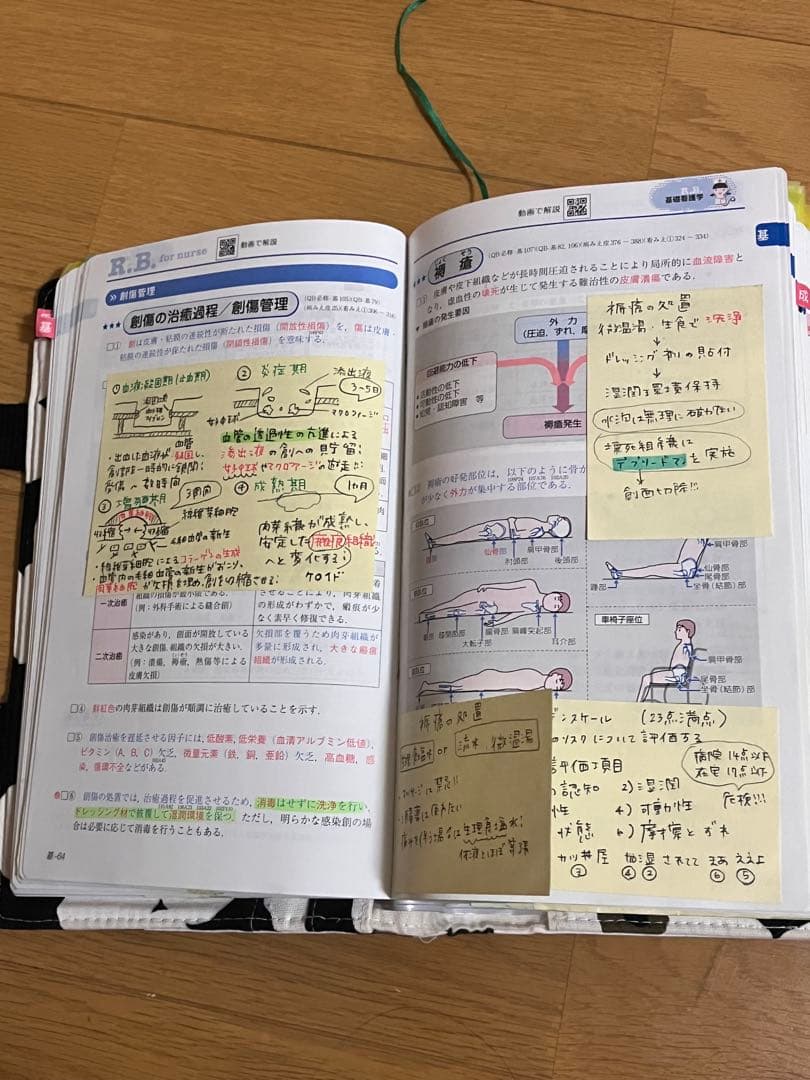 R.B. for nurse
動画で解説
創傷管理
創傷の治癒過程／創傷管理
□① 創は皮膚・粘膜の連続性が断たれた損傷（開放性損傷）を，傷は皮膚・
粘膜の連続性が保たれた損傷（閉鎖性損傷）を意味する．
①血液凝固期(止血期)
・出血した血液が
血管
凝固し、
創部を一時的に閉鎖；
受傷〜数時間
② 炎症期
滲出液
3〜5日
好中球
マクロファージ
血管の透過性の亢進による
滲出液の創への貯留；
好中球やマクロファージの遊走；
③増殖期
3週間
線維芽細胞
毛細血管の新生
・線維芽細胞によるコラーゲンの生成
・血管内の毛細血管の新生がおこり、
肉芽組織が欠損を埋め、創を収縮させる；
④ 成熟期
1カ月
肉芽組織が成熟し、
安定した瘢痕組織
へと変化する；
ケロイド
一次治癒
組織の損傷が最小限である．
（例：外科手術による縫合創）
させることにより，組織
の形成がわずかで，瘢痕が少
なく素早く修復できる．
二次治癒
感染があり，創面が開放している
大きな創傷．組織の欠損が大きい．
（例：潰瘍，褥瘡，熱傷等による
皮膚欠損）
欠損部を覆うため肉芽組織が
多量に形成され，大きな瘢痕
組織が形成される．
□④ 鮮紅色の肉芽組織は創傷が順調に治癒していることを示す．
□⑤ 創傷治癒を遅延させる因子には，低酸素，低栄養（血清アルブミン低値），
ビタミン（A, B, C）欠乏，微量元素（鉄，銅，亜鉛）欠乏，高血糖，感
染，循環不全などがある．
□⑥ 創傷の処置では，治癒過程を促進させるため，消毒はせずに洗浄を行い，
ドレッシング材で被覆して湿潤環境を保つ．ただし，明らかな感染創の場
合は必要に応じて消毒を行うこともある．
基-64
動画で解説
R.B.
基礎看護学
基
成
褥瘡
じょく そう
（QB必修-基107）（QB-基82, 106）（病みえ皮376－388）（看みえ①324－334）
皮膚や皮下組織などが長時間圧迫されることにより局所的に血流障害と
なり，虚血性の壊死が生じて発生する難治性の皮膚潰瘍である．
▼ 褥瘡の発生要因
外 力
（圧迫，ずれ，摩
回避能力の低下
・活動性の低下
・可動性の低下
・知覚・認知障害 等
褥瘡発生
褥瘡の処置
微温湯・生食で洗浄
↓
ドレッシング剤の貼付
↓
湿潤環境保持
水泡は無理に破かない
壊死組織は
デブリードマンを実施
↓
創面切除!!!
褥瘡の好発部位は，以下のように骨が
が少なく外力が集中する部位である．
仙骨部
肘頭部
肩甲骨部
後頭部
肩甲骨部
仙骨部
尾骨部
坐骨（結節）部
踵部
膝関節部
大転子部
腸骨部
肩峰突起部
耳介部
車椅子座位
肩甲骨部
尾骨部
坐骨（結節）部
褥瘡の処置
生理食塩水 or 流水、微温湯
・マッサージは禁忌!!
・消毒は使わない
痛みを伴う場合は生理食塩水；
体液とほぼ等張
デンスケール （23点満点）
のリスクについて評価する
評価項目
の認知 2) 湿潤
性 4) 可動性
状態 6) 摩擦とずれ
病院 14点以下
在宅 17点以下
危険!!!
カツ丼屋 加湿されてて まあええよ
③ ④ ② ⑥ ⑤